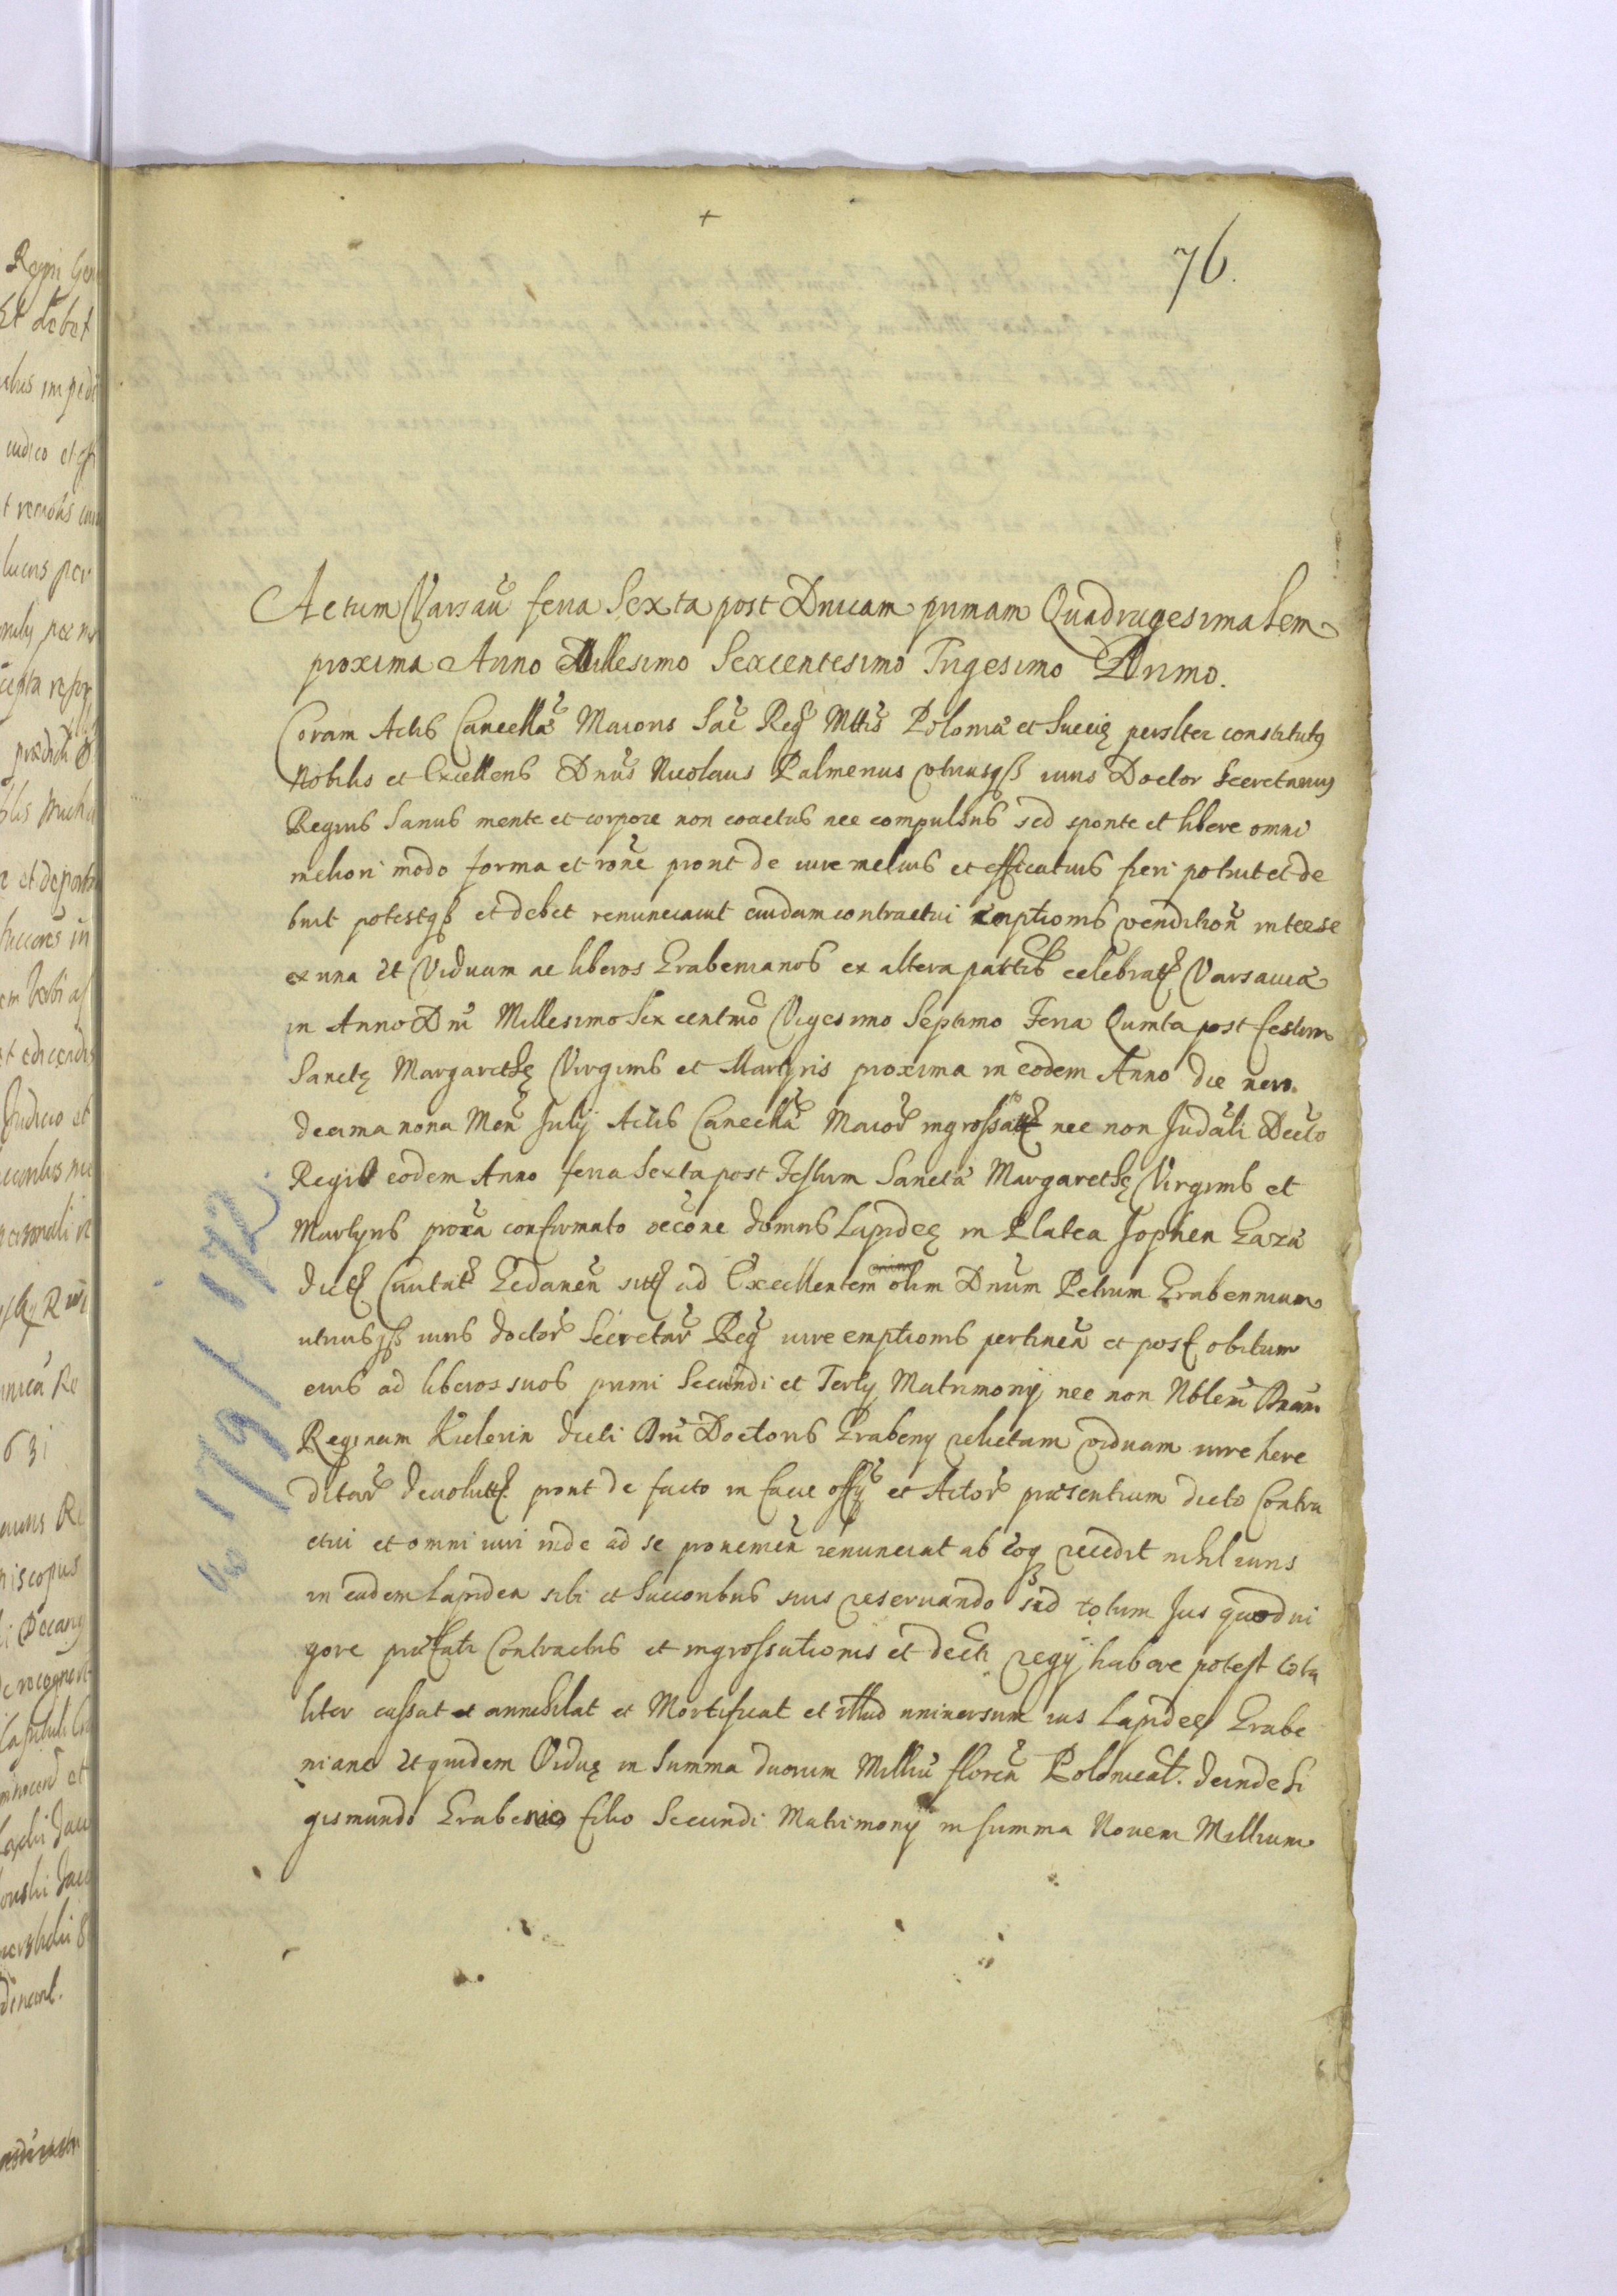 76.
Actum Varsauiæ feria Sexta post Dnicam primam Quadragesimalem
proxima Anno Millesimo Sexcentesimo Trigesimo Primo.
Coram Actis Cancellã Maioris Sac Reg Mttis Poloniæ et Suecię persliter constitutus
Nobilis et Excellens Dnus Nicolaus Palmenus vtriusqß iuris Doctor Secretarius
Regius Sanus mente et corpore non coactus nec compulsus sed sponte et libere omni
meliori modo forma et rone pront de iure melius et efficatius fieri potuit et de
buit potestqß et debet renunciauit cuidam contractui emptionis vendition inter se
ex una Et Viduam ac liberos Grabenianos ex altera partib celebrat Varsauiæ
in Anno Dni Millesimo Sexcentmo Vigesimo Septimo Feria Quinta post festum
Sanctę Margarethę Virginis et Martyris proxima in eodem Anno die vero
decima nona Men Julij Actis Cancella Maior ingrossat nec non Judali Decto
Regio eodem Anno feria Sexta post Festum Sanctæ Margarethę Virginis et
Martyris proxa confirmato oecone domus Lapideę in Platea Jophen Gaza
dict Ciuitat Gedanen sit ad Excellentem olim Dnum Petrum Grabennium
utriusqß iuris doctor Secretar Reg iure emptionis pertinen et post obitum
eius ad liberos suos primi Secundi et Tertij Matrimonij nec non Nblem Dnam
Reginam Kielerin dicti Dni Doctoris Grabenij relictam viduam iure here
ditar deuolutt pront de facto in facie offy et Actor præsentium dicto Contra
ctui et omni iuri inde ad se prouenien renunciat ab eoq recedit nihil iuris
in eadem Lapidea sibi et Succoribus suis reseruando sed totum Jus quod vi
gore præfati Contractus et ingrossationis et decti regij habere potest tota
liter cassat et annihilat et Mortificat et illud uniuersum ius Lapideę Grabe
nianæ Et quidem Viduę in Summa duorum Milliũ floren Polonicat. deinde Si
gismundo Grabenio filio Secundi Matrimonij in summa Nouem Millium